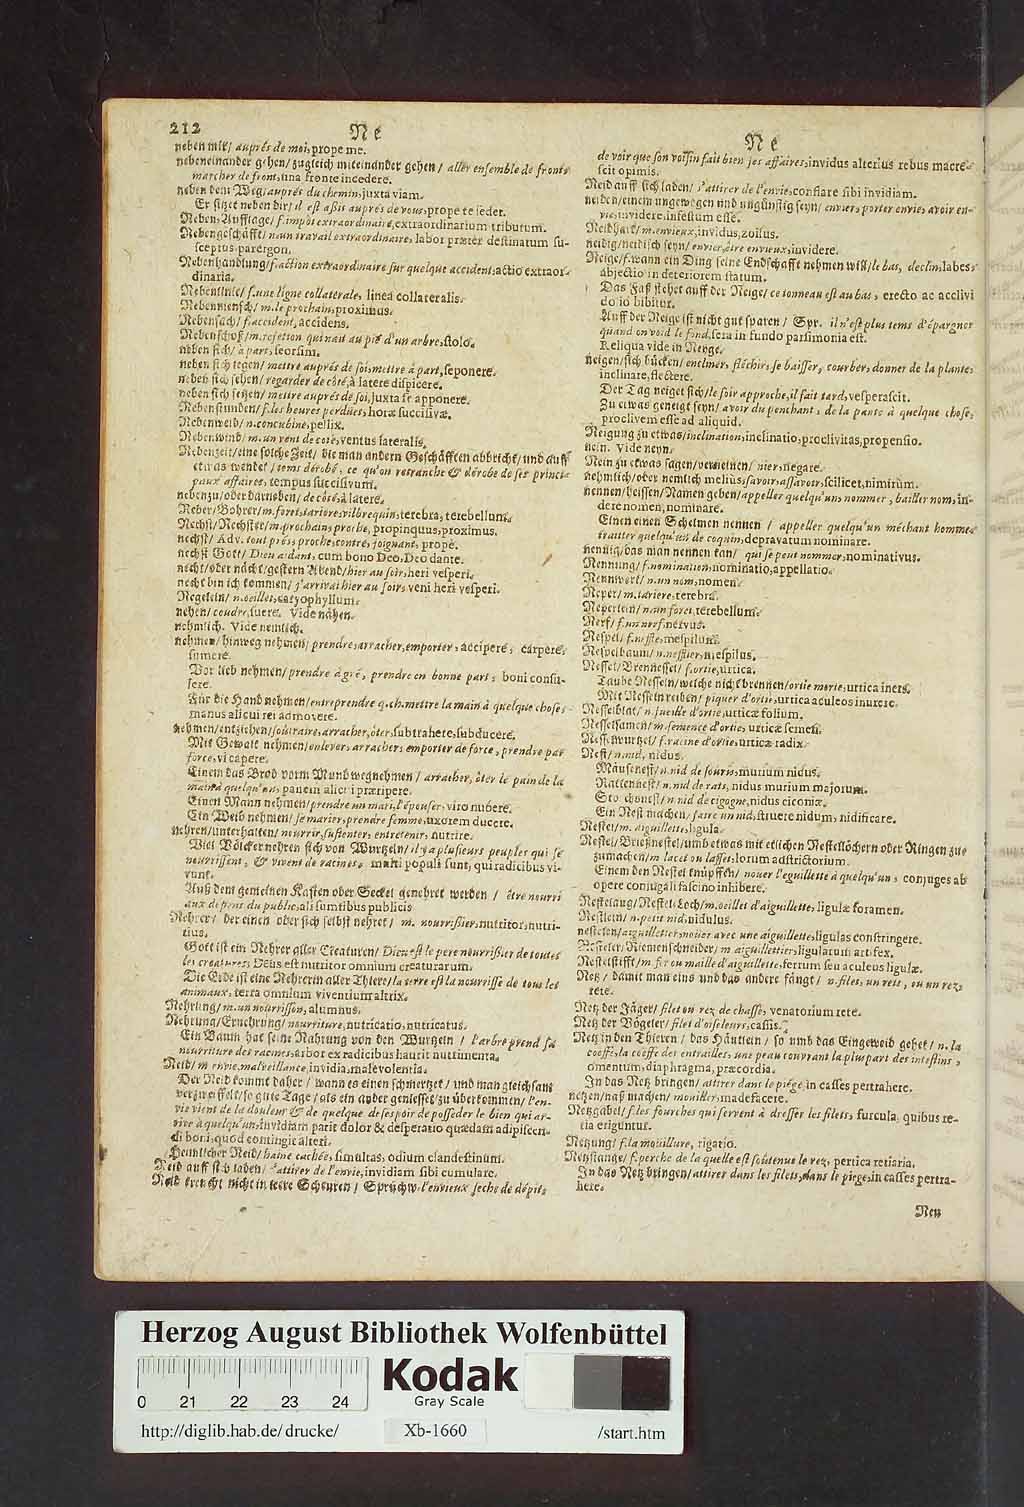 212
Ne
neben mir/ auprés de moi, prope me.
nebeneinander gehen/ zugleich miteinander gehen/ aller ensemble de fronts
marcher de front, una fronte incedere.
neben dem Weg/ auprés du chemin, juxta viam.
Er sitzet neben dir/ il est assis auprés de vous, prope te sedet.
Neben-Aufflage/ f. impôt extraordinaire, extraordinarium tributum.
Nebengeschäfft/ n. un travail extraordinaire, labor præter destinatum su-
sceptus, parergon.
Nebenhandlung/ f. action extraordinaire sur quelque accident, actio extraor-
dinaria.
Nebenlinie/ f. une ligne collaterale, linea collateralis.
Nebenmensch/ m. le prochain, proximus.
Nebensach/ f. accident, accidens.
Nebenschoß/ m. rejetton qui nait au pié d'un arbre, stolo.
neben sich/ à part, seorsim.
neben sich legen/ mettre auprés de soi, mettre à part, seponere.
neben sich sehen/ regarder de côté, à latere dispicere.
neben sich setzen/ mettre auprés de soi, juxta se apponere.
Nebenstunden/ f. les heures perdües, horæ succisivæ.
Nebenweib/ n. concubine, pellix.
Nebenwind/ m. un vent de côté, ventus lateralis.
Nebenzeit/ eine solche Zeit/ die man andern Geschäfften abbricht/ und auff
etwas wendet/ tems dérobé, ce qu'on retranche & dérobe de ses princi-
paux affaires, tempus succisivum.
nebenzu/ oder darneben/ de côté, à latere.
Neber/ Bohrer/ m. foret, tariere, vilbrequin, terebra, terebellum.
Nechst/ Nechster/ m. prochain, proche, propinquus, proximus.
nechst/ Adv. tout prés, proche, contre, joignant, propè.
nechst Gott/ Dieu aidant, cum bono Deo, Deo dante.
necht/ oder nächt/ gestern Abend/ hier au soir, heri vesperi.
necht bin ich kommen/ j'arrivai hier au soir, veni heri vesperi.
Negelein/ n. oeillet, caryophyllum.
nehen/ coudre, suere. Vide nähen.
nehmlich. Vide nemlich.
nehmen/ hinweg nehmen/ prendre, arracher, emporter, accipere, carpere,
sumere.
Vor lieb nehmen/ prendre à gré, prendre en bonne part, boni consu-
lere.
Für die Hand nehmen/ entreprendre q. ch. mettre la main à quelque chose,
manus alicui rei admovere.
nehmen/ entziehen/ soustraire, arracher, ôter, subtrahere, subducere.
Mit Gewalt nehmen/ enlever, arracher, emporter de force, prendre par
force, vi capere.
Einem das Brod vorm Mund wegnehmen/ arracher, ôter le pain de la
main à quelqu'un, panem alicui præripere.
Einen Mann nehmen/ prendre un mari, l'épouser, viro nubere.
Ein Weib nehmen/ se marier, prendre femme, uxorem ducere.
nehren/ unterhalten/ nourrir, sustenter, entretenir, nutrire.
Viel Völcker nehren sich von Wurtzeln/ il y a plusieurs peuples qui se
nourrissent, & vivent de racines, multi populi sunt, qui radicibus vi-
vunt.
Auß dem gemeinen Kasten oder Seckel genehret werden/ être nourri
aux depens du public, ali sumtibus publicis
Nehrer/ der einen oder sich selbst nehret/ m. nourrissier, nutritor, nutri-
tius.
Gott ist ein Nehrer aller Creaturen/ Dieu est le pere nourrissier de toutes
les creatures, Deus est nutritor omnium creaturarum.
Die Erde ist eine Nehrerin aller Thiere/ la terre est la nourrisse de tous les
animaux, terra omnium viventium altrix.
Nehrling/ m. un nourrisson, alumnus.
Nehrung/ Ernehrung/ nourriture, nutricatio, nutricatus.
Ein Baum hat seine Nahrung von den Wurtzeln/ l'arbre prend sa
nourriture des racines, arbor ex radicibus haurit nutrimenta.
Neid/ m. envie, malveillance, invidia, malevolentia.
Der Neid kommt daher/ wann es einen schmertzet/ und man gleichsam
verzweiffelt/ so gute Tage/ als ein ander geniesset/ zu überkommen/ l'en-
vie vient de la douleur & de quelque desespoir de posseder le bien qui ar-
rive à quelqu'un, invidiam parit dolor & desperatio quædam adipiscen-
di boni, quod contingit alteri.
Heimlicher Neid/ haine cachée, simultas, odium clandestinum.
Neid auff sich laden/ s'attirer de l'envie, invidiam sibi cumulare.
Neid kreucht nicht in leere Scheuren/ Sprüchw. l'envieux seche de dépit,
Ne
de voir que son voisin fait bien ses affaires, invidus alterius rebus macre-
scit opimis.
Neid auff sich laden/ s'attirer de l'envie, conflare sibi invidiam.
neiden/ einem ungewogen und ungünstig seyn/ envier, porter envie, avoir en-
vie, invidere, infestum esse.
Neidhart/ m. envieux, invidus, zoilus.
neidig/ neidisch seyn/ envier, être envieux, invidere.
Neige/ f. wann ein Ding seine Endschafft nehmen will/ le bas, declin, labes,
abjectio in deteriorem statum.
Das Faß stehet auff der Neige/ ce tonneau est au bas, erecto ac acclivi
dolio bibitur.
Auff der Neige ist nicht gut sparen/ Spr. il n'est plus tems d'épargner
quand on void le fond, sera in fundo parsimonia est.
Reliqua vide in Neyge.
neigen/ sich bücken/ encliner, fléchir, se baisser, courber, donner de la plante,
inclinare, flectere.
Der Tag neiget sich/ le soir approche, il fait tard, vesperascit.
Zu etwas geneigt seyn/ avoir du penchant, de la pante à quelque chose,
proclivem esse ad aliquid.
Neigung zu etwas/ inclination, inclinatio, proclivitas, propensio.
nein. Vide neyn.
Nein zu etwas sagen/ verneinen/ nier, negare.
nehmlich/ oder nemlich melius, savoir, assavoir, scilicet, nimirùm.
nennen/ heissen/ Namen geben/ appeller quelqu'un, nommer, bailler nom, in-
dere nomen, nominare.
Einen einen Schelmen nennen/ appeller quelqu'un méchant homme,
traitter quelqu'un de coquin, depravatum nominare.
nennig/ das man nennen kan/ qui se peut nommer, nominativus.
Nennung/ f. nomination, nominatio, appellatio.
Nennwort/ n. un nom, nomen.
Neper/ m. tariere, terebra.
Neperlein/ n. un foret, terebellum.
Nerf/ f. un nerf, nervus.
Nespel/ f. nesfle, mespilum.
Nespelbaum/ n. nesflier, mespilus.
Nessel/ Brennessel/ f. ortie, urtica.
Taube Nesseln/ welche nicht brennen/ ortie morte, urtica iners.
Mit Nesseln reiben/ piquer d'ortie, urticæ aculeos inurere.
Nesselblat/ n. fueille d'ortie, urticæ folium.
Nesselsamen/ m. semence d'ortie, urticæ semen.
Nesselwurtzel/ f. racine d'ortie, urticæ radix.
Nest/ n. nid, nidus.
Mäusenest/ n. nid de souris, murium nidus.
Rattennest/ n. nid de rats, nidus murium majorum.
Storchnest/ n. nid de cigogne, nidus ciconiæ.
Ein Nest machen/ faire un nid, struere nidum, nidificare.
Nestel/ m. aiguillette, ligula.
Nestel/ Brießnestel/ umb etwas mit etlichen Nestellöchern oder Ringen zu-
zumachen/ m. lacet ou lasset, lorum adstrictorium.
Einem den Nestel knüpffen/ nouer l'eguillette à quelqu'un, conjuges ab
opere conjugali fascino inhibere.
Nestelaug/ Nestel-Loch/ m. oeillet d'aiguillette, ligulæ foramen.
Nestlein/ n. petit nid, nidulus.
nesteln/ aiguilletter, nouer avec une aiguillette, ligulas constringere.
Nesteler, Riemenschneider/ m. aiguillettier, ligularum artifex.
Nestelstifft/ m. fer ou maille d'aiguillette, ferrum seu aculeus ligulæ.
Netz/ damit man eins und das andere fängt/ n. filet, un rets, ou un rez,
rete.
Netz der Jäger/ filet ou rez de chasse, venatorium rete.
Netz der Vögeler/ filet d'oiseleurs, cassis.
Netz in den Thieren/ das Häutlein/ so umb das Eingeweid gehet/ n. la
coeffe, la coeffe des entrailles, une peau couvrant la pluspart des intestins,
omentum, diaphragma, præcordia.
In das Netz bringen/ attirer dans le piége, in casses pertrahere.
netzen/ naß machen/ mouiller, madefacere.
Netzgabel/ f. les fourches qui servent à dresser les filets, furcula, quibus re-
tia eriguntur.
Netzung/ f. la mouillure, rigatio.
Netzstange/ f. perche de la quelle est soûtenue le rez, pertica retiaria.
In das Netz bringen/ attirer dans les filets, dans le piege, in casses pertra-
here.
Netz
Herzog August Bibliothek Wolfenbüttel
Kodak
Gray Scale
0 21 22 23 24
http://diglib.hab.de/drucke/ Xb-1660 /start.htm